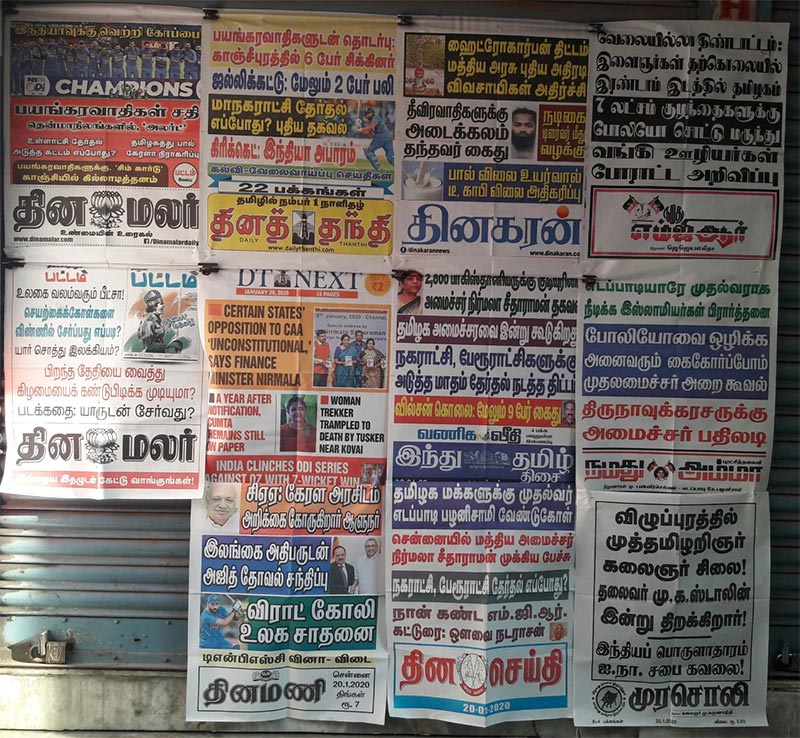 இந்தியாவுக்கு வெற்றி கோப்பை
CHAMPIONS
பயங்கரவாதிகள் சதி
தென்மாநிலங்களில், 'அலர்ட்'
உள்ளாட்சி தேர்தல்
அடுத்த கட்டம் எப்போது?
தமிழகத்து பால்
கேரளா நிராகரிப்பு
பயங்கரவாதிகளுக்கு, 'சிம் கார்டு'
காஞ்சியில் கில்லாடித்தனம்
பட்டம்
தின மலர்
உண்மையின் உரைகல்
www.dinamalar.com
/Dinamalardaily
பயங்கரவாதிகளுடன் தொடர்பு:
காஞ்சீபுரத்தில் 6 பேர் சிக்கினர்
ஜல்லிக்கட்டு: மேலும் 2 பேர் பலி
மாநகராட்சி தேர்தல்
எப்போது? புதிய தகவல்
கிரிக்கெட்: இந்தியா அபாரம்
கல்வி-வேலைவாய்ப்பு செய்திகள்
22 பக்கங்கள்
தமிழில் நம்பர் 1 நாளிதழ்
தினத் தந்தி
DAILY THANTHI
www.dailythanthi.com
ஹைட்ரோகார்பன் திட்டம்
மத்திய அரசு புதிய அதிரடி
விவசாயிகள் அதிர்ச்சி
தீவிரவாதிகளுக்கு
அடைக்கலம்
தந்தவர் கைது
நடிகை
டிரைவர் மீது
வழக்கு
பால் விலை உயர்வால்
டீ, காபி விலை அதிகரிப்பு
தினகரன்
/dinakarannews
www.dinakaran.com
வேலையில்லா திண்டாட்டம்:
இளைஞர்கள் தற்கொலையில்
இரண்டாம் இடத்தில் தமிழகம்
7 லட்சம் குழந்தைகளுக்கு
போலியோ சொட்டு மருந்து
வங்கி ஊழியர்கள்
போராட்ட அறிவிப்பு
புதிய
எம்ஜிஆர்
பட்டம் பட்டம்
உலகை வலம்வரும் பீட்சா!
செயற்கைக்கோள்களை
விண்ணில் சேர்ப்பது எப்படி?
யார் சொத்து இலக்கியம்?
பிறந்த தேதியை வைத்து
கிழமையைக் கண்டுபிடிக்க முடியுமா?
படக்கதை: யாருடன் சேர்வது?
தின மலர்
இதழுடன் கேட்டு வாங்குங்கள்!
DT NEXT
₹2
JANUARY 20, 2020 16 PAGES
CERTAIN STATES'
OPPOSITION TO CAA
'UNCONSTITUTIONAL,'
SAYS FINANCE
MINISTER NIRMALA
January, 2020 - Chennai
A YEAR AFTER
NOTIFICATION,
CUMTA
REMAINS STILL
ON PAPER
WOMAN
TREKKER
TRAMPLED TO
DEATH BY TUSKER
NEAR KOVAI
INDIA CLINCHES ODI SERIES
AGAINST OZ WITH 7-WICKET WIN
2,800 பாகிஸ்தானியருக்கு குடியுரிமை
அமைச்சர் நிர்மலா சீதாராமன் தகவல்
தமிழக அமைச்சரவை இன்று கூடுகிறது
நகராட்சி, பேரூராட்சிகளுக்கு
அடுத்த மாதம் தேர்தல் நடத்த திட்டம்
வில்சன் கொலை: மேலும் 9 பேர் கைது
வணிக வீதி
இந்து தமிழ்
திசை
எடப்பாடியாரே முதல்வராக
நீடிக்க இஸ்லாமியர்கள் பிரார்த்தனை
போலியோவை ஒழிக்க
அனைவரும் கைகோர்ப்போம்
முதலமைச்சர் அறை கூவல்
திருநாவுக்கரசருக்கு
அமைச்சர் பதிலடி
நமது அம்மா
சிஏஏ: கேரள அரசிடம்
அறிக்கை கோருகிறார் ஆளுநர்
இலங்கை அதிபருடன்
அஜித் தோவல் சந்திப்பு
விராட் கோலி
உலக சாதனை
டிஎன்பிஎஸ்சி வினா - விடை
தினமணி
சென்னை
20.1.2020
திங்கள்
ரூ. 7
தமிழக மக்களுக்கு முதல்வர்
எடப்பாடி பழனிசாமி வேண்டுகோள்
சென்னையில் மத்திய அமைச்சர்
நிர்மலா சீதாராமன் முக்கிய பேச்சு
நகராட்சி, பேரூராட்சி தேர்தல் எப்போது?
நான் கண்ட எம்.ஜி.ஆர்.
கட்டுரை: ஔவை நடராசன்
தின செய்தி
20-01-2020
விழுப்புரத்தில்
முத்தமிழறிஞர்
கலைஞர் சிலை!
தலைவர் மு.க.ஸ்டாலின்
இன்று திறக்கிறார்!
இந்தியப் பொருளாதாரம்
ஐ.நா. சபை கவலை!
முரசொலி
20.1.2020